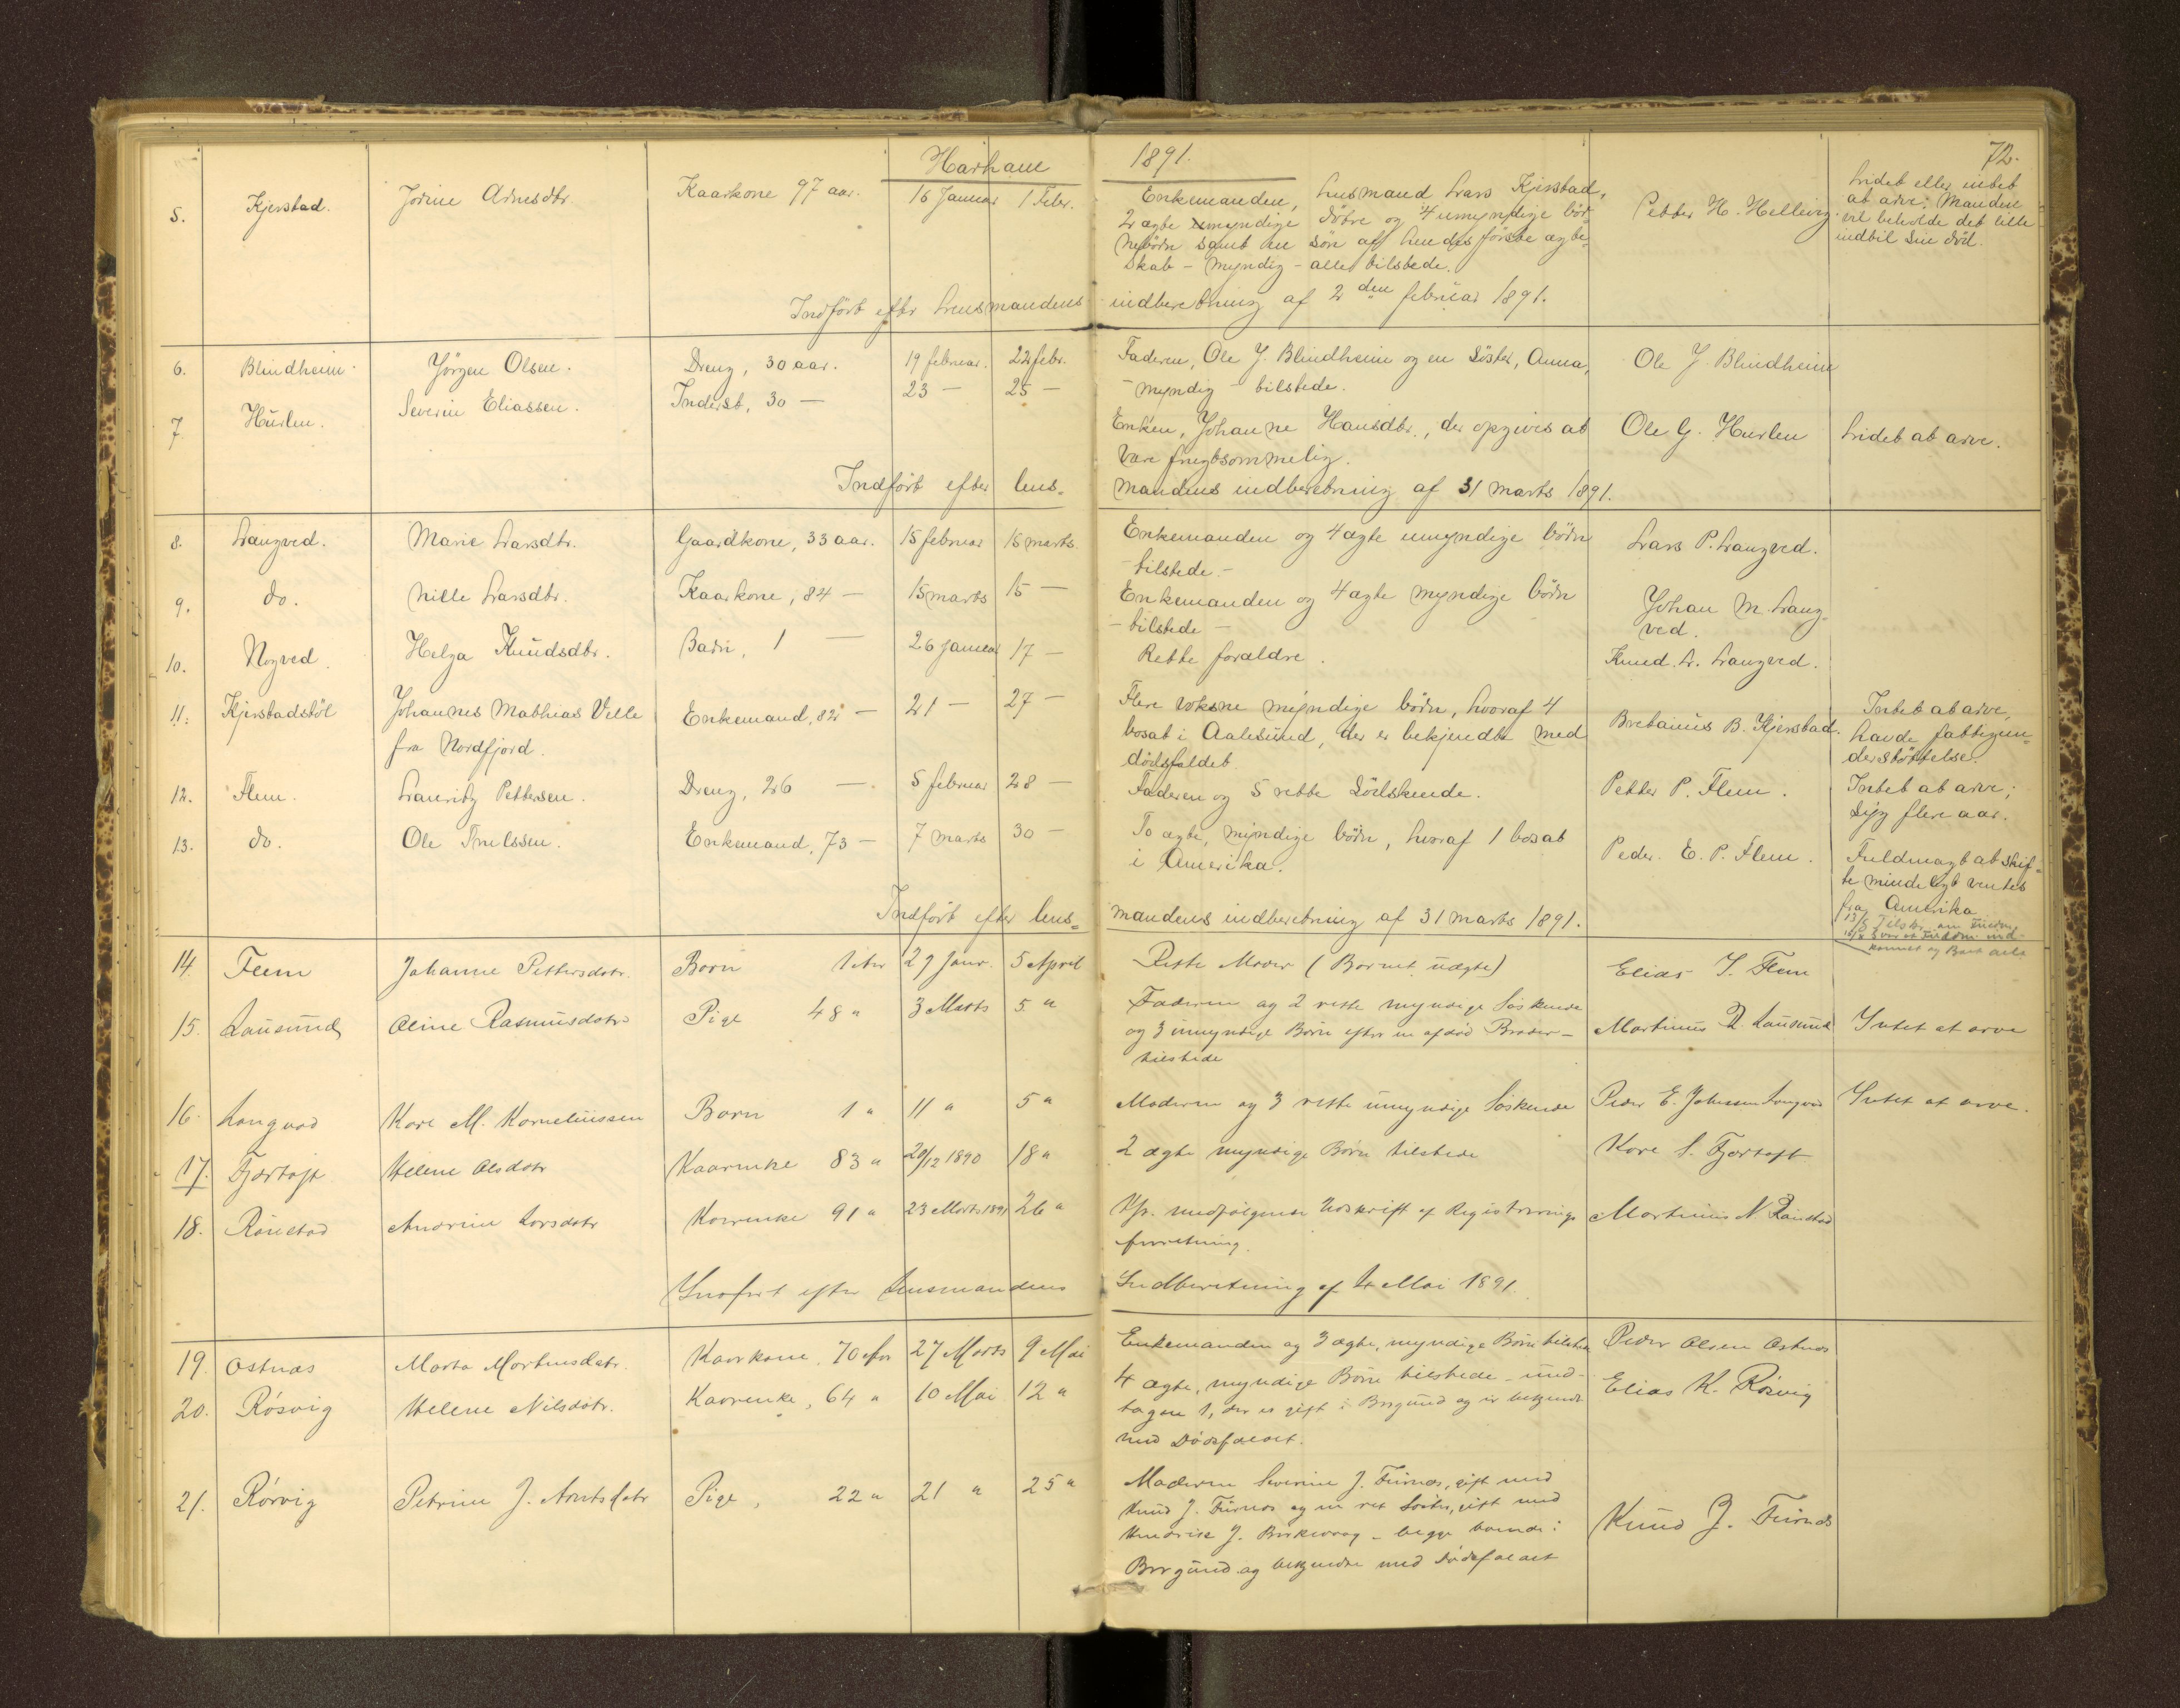 Harham 1891. 72.
5. Kjerstad. Jorine Arnesdtr. Kaarkone 97 aar. 16 Januar 1 Febr. Enkemanden, husmand Lars Kjerstad, Petter H. Hellevig. Lidet eller intet
2 ægte myndige døtre og 4 umyndige bör- at arve; Manden
nebörn samt en sön af hendes förste ægte- vil beholde det lille
skab - myndig - alle tilstede. indtil sin död.
Indfört efter Lensmandens indberetning af 2den februar 1891.
6. Blindheim. Jörgen Olsen. Dreng, 30 aar. 19 februar. 22 febr. Faderen, Ole J. Blindheim og en söster, Anna, Ole J. Blindheim
- myndig - tilstede.
7. Hurlen. Severin Eliassen. Inderst, 30 — 23 — 25 — Enken, Johanne Hansdtr., der opgives at Ole G. Hurlen Lidet at arve.
være frugtsommelig.
Indfört efter lens- mandens indberetning af 31 marts 1891.
8. Langved. Marie Larsdtr. Gaardkone, 33 aar. 15 februar 15 marts. Enkemanden og 4 ægte umyndige börn Lars P. Langved.
- tilstede -
9. do. Nille Larsdtr. Kaarkone, 84 — 15 marts 15 — Enkemanden og 4 ægte myndige börn Johan M. Lang-
- tilstede - ved.
10. Nogved. Helga Knudsdtr. Barn, 1 — 26 januar 17 — Rette forældre. Knud. L. Langved.
11. Kjerstadstöl Johannes Mathias Velle Enkemand, 82 — 21 — 27 — Flere voksne myndige börn, hvoraf 4 Bretanius B. Kjerstad. Intet at arve,
fra Nordfjord. bosat i Aalesund, der er bekjendte med havde fattigun-
dödsfaldet. derstöttelse.
12. Flem. Lauritz Pettersen. Dreng, 26 — 5 februar 28 — Faderen og 5 rette Södskende. Petter P. Flem. Intet at arve;
syg flere aar.
13. do. Ole Truelssen. Enkemand, 73 — 7 marts 30 — To ægte, myndige börn, hvoraf 1 bosat Peder. E. P. Flem. Fuldmagt at skif-
i Amerika. te mindeligt ventes
fra Amerika
Indfört efter lens- mandens indberetning af 31 marts 1891.
14. Flem Johanne Pettersdatr. Barn 1 Aar 27 Janr. 5 April Rette Moder (Barnet uægte) Elias J. Flem
15. Lausund Oline Rasmusdatr. Pige 48 " 3 Marts 5 " Faderen og 2 rette myndige Söskende Martinus R. Lausund Intet at arve
og 3 umyndige Börn efter en afdöd Broder -
tilstede
16. Langvad Kare M. Korneliussen Barn 1 " 11 " 5 " Moderen og 3 rette umyndige Söskende Peder E. Johnsen Langvad Intet at arve.
17. Fjærtoft Helene Olsdatr Kaarenke 83 " 20/12 1890 18 " 2 ægte myndige Börn tilstede Kare S. Fjærtoft
18. Rönstad Andrine Larsdatr Kaarenke 91 " 23 Marts 1891 26 " Vfr. medfölgende Udskrift af Registrerings Martinus N. Rönstad
forretning.
Indfört efter Lensmandens Indberetning af 4 Mai 1891.
19. Ostnæs Marta Martinusdatr. Kaarkone 70 Aar 27 Marts 9 Mai Enkemanden og 3 ægte, myndige Börn tilstede Peder Olsen Ostnæs
20. Rösvig Helene Nilsdatr. Kaarenke, 64 " 10 Mai 12 " 4 ægte, myndige Börn tilstede - und- Elias K. Rösvig
tagen 1, der er gift i Borgund og er bekjendt
med Dödsfaldet.
21. Rörvig Petrine J. Arntsdatr Pige, 22 " 21 " 25 " Moderen Severine J. Furnæs, gift med Knud J. Furnæs
Knud J. Furnæs og en ret Söster, gift med
J. begge boende i
Borgund og bekjendte med Dödsfaldet